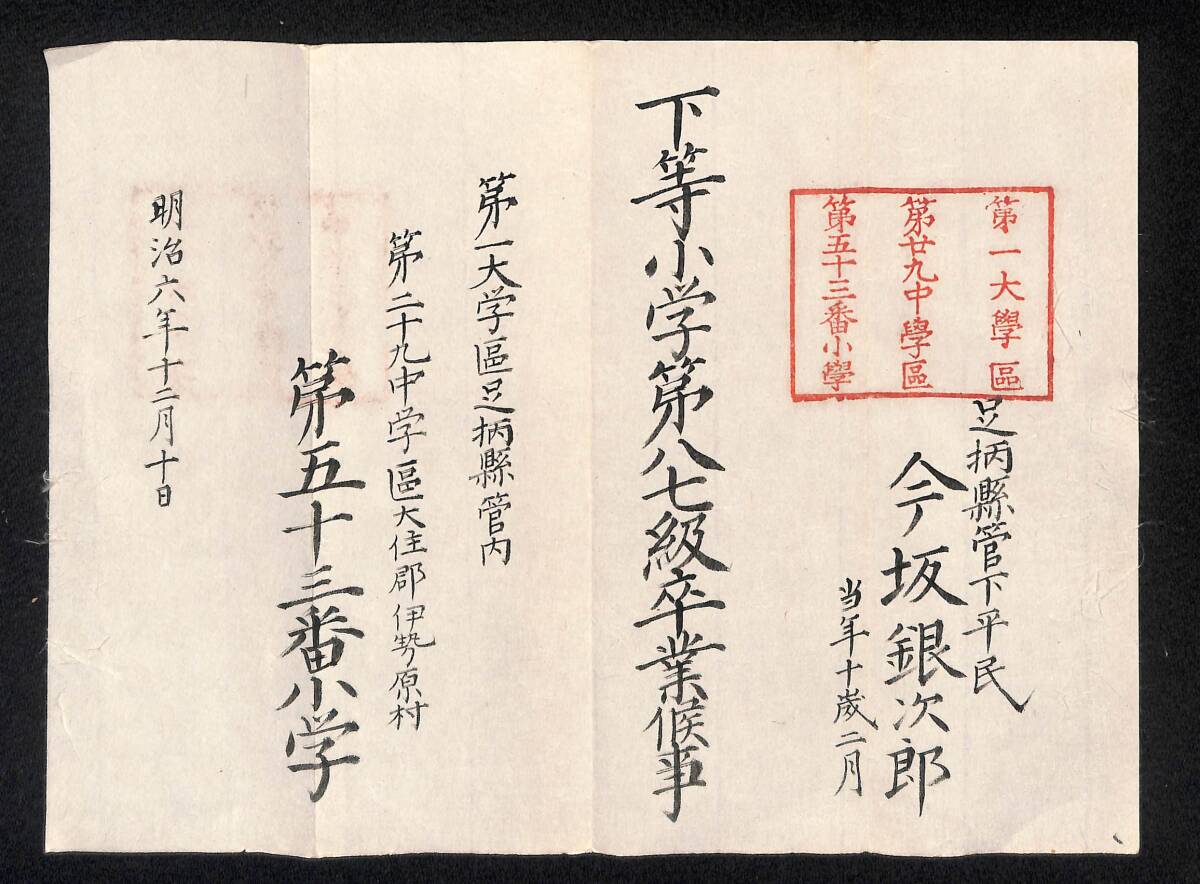 第一大學區
第廿九中學區
第五十三番小學
足柄縣管下平民
今坂銀次郎
当年十歳二月
下等小学第八七級卒業候事
第一大学區足柄縣管内
第二十九中学區大住郡伊勢原村
第五十三番小学
明治六年十二月十日